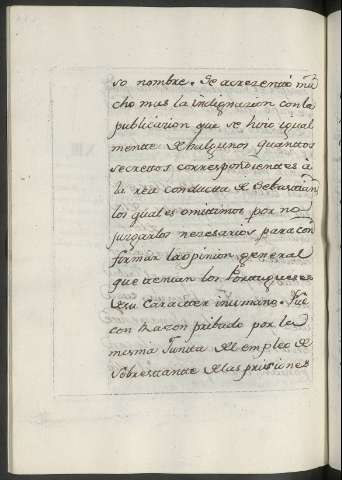 so nombre. Se acrecentó mu
cho mas la indignacion con la
publicacion que se hizo igual
mente de halgunos quantos
secretos correspondientes à
la rea conducta de Sebastian,
los quales omitimos por no
juzgarlos necesarios para con
formar la opinion general
que tenian los Portugueses
de su caracter inumano. Fue
con razon pribado por la
mesma Junta del empleo de
Sobrestante de las prisiones